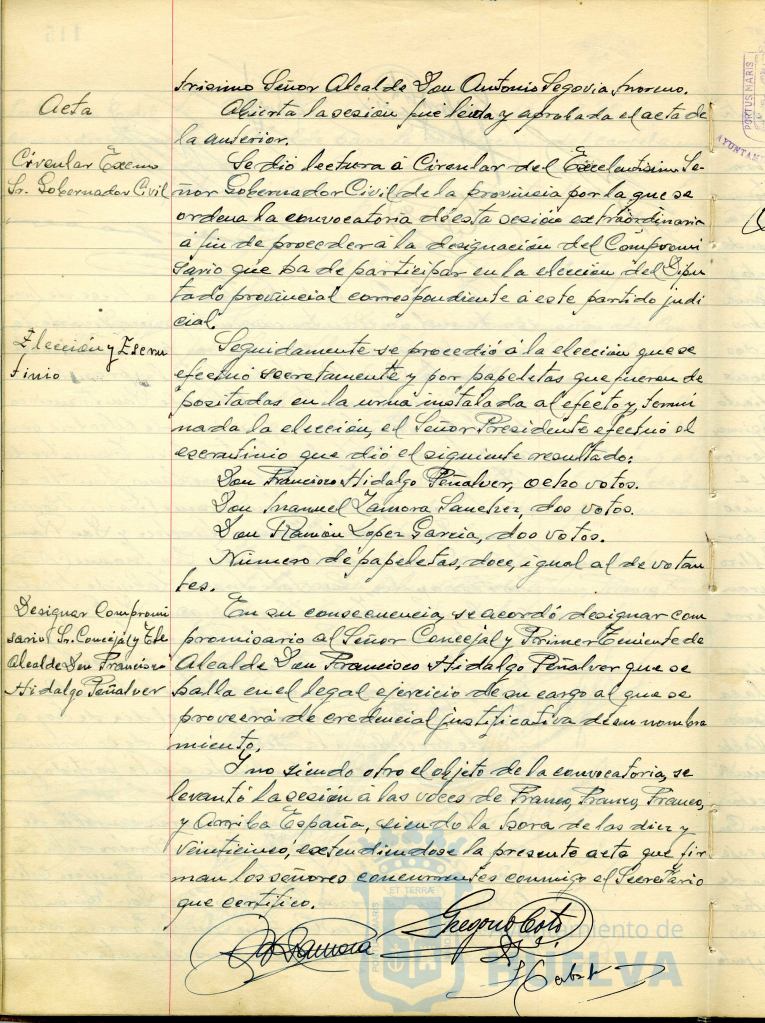 trisimo Señor Alcalde Don Antonio Segovia Moreno.
Acta
Abierta la sesión fué leida y aprobada el acta de
la anterior.
Circular Excmo
Sr. Gobernador Civil
Se dió lectura á Circular del Excelentisimo Se-
ñor Gobernador Civil de la provincia por la que se
ordena la convocatoria de ésta sesión extraordinaria
á fin de proceder á la designación del Compromi
sario que ha de participar en la elección del Dipu
tado provincial correspondiente á este partido judi
cial.
Elección y Escru
tinio
Seguidamente se procedió á la elección que se
efectuó secretamente y por papeletas que fueron de
positadas en la urna instalada al efecto y, termi
nada la elección, el Señor Presidente efectuó el
escrutinio que dió el siguiente resultado:
Don Francisco Hidalgo Peñalver, ocho votos.
Don Manuel Zamora Sanchez, dos votos.
Don Ramón Lopez Garcia, dos votos.
Número de papeletas, doce, igual al de votan
tes.
Designar Compromi
sario Sr. Concejal y Tte
Alcalde Don Francisco
Hidalgo Peñalver
En su consecuencia, se acordó designar com
promisario al Señor Concejal y Primer Teniente de
Alcalde Don Francisco Hidalgo Peñalver que se
halla en el legal ejercicio de su cargo al que se
proveerá de credencial justificativa de su nombra
miento.
Y no siendo otro el objeto de la convocatoria, se
levantó la sesión á las voces de Franco, Franco, Franco,
y Arriba España, siendo la hora de las diez y
veinticinco, extendiendose la presente acta que fir
man los señores concurrentes conmigo el Secretario
que certifico.
Zamora
Gregorio Coto
Ayuntamiento de
HUELVA
PORTUS MARIS
AYUNTAM